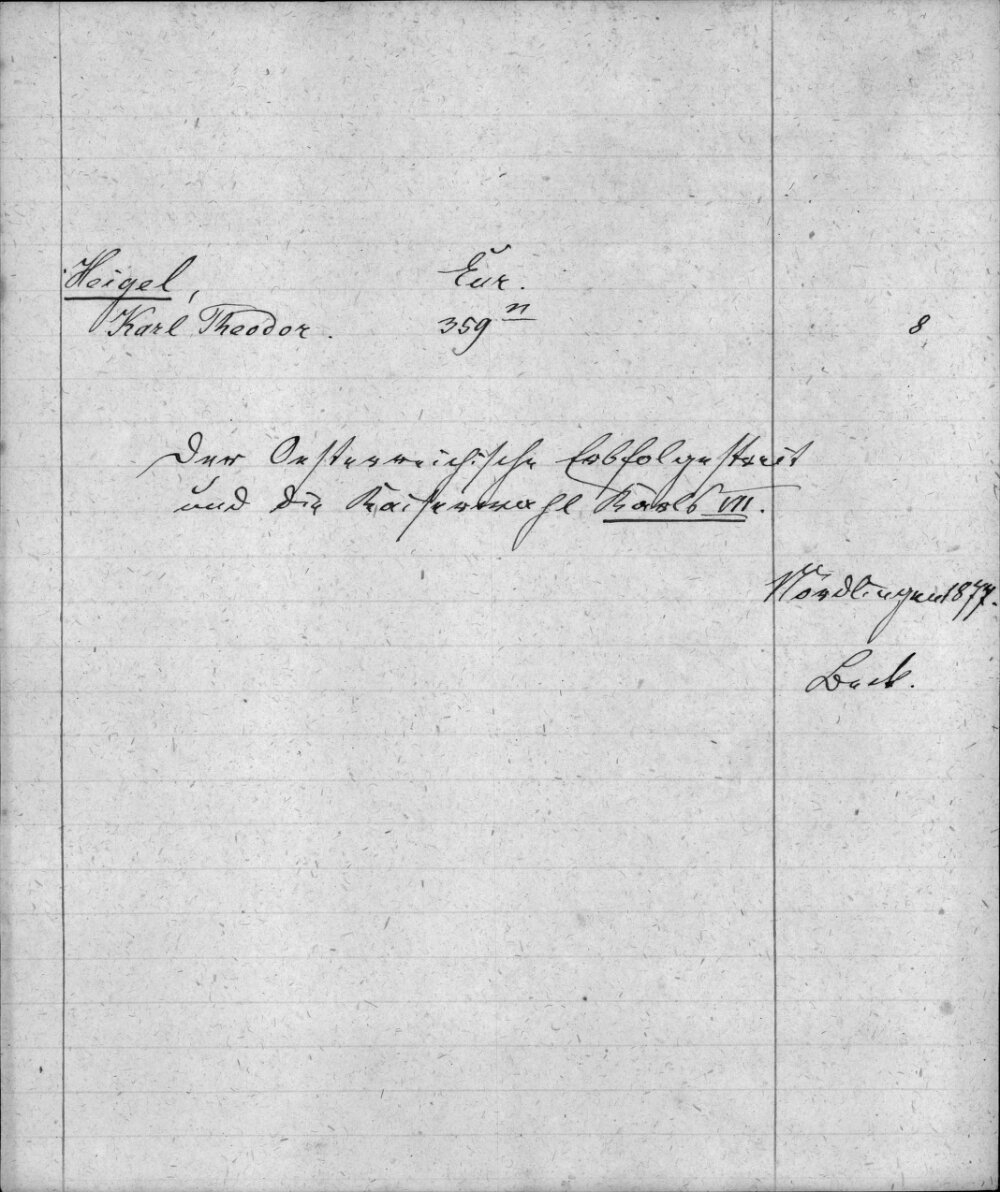 Heigel, Eur.
Karl Theodor. 359 n 8
Der Oesterreichische Erbfolgestreit
und die Kaiserwahl Karls VII.
Nördlingen 1877.
Beck.